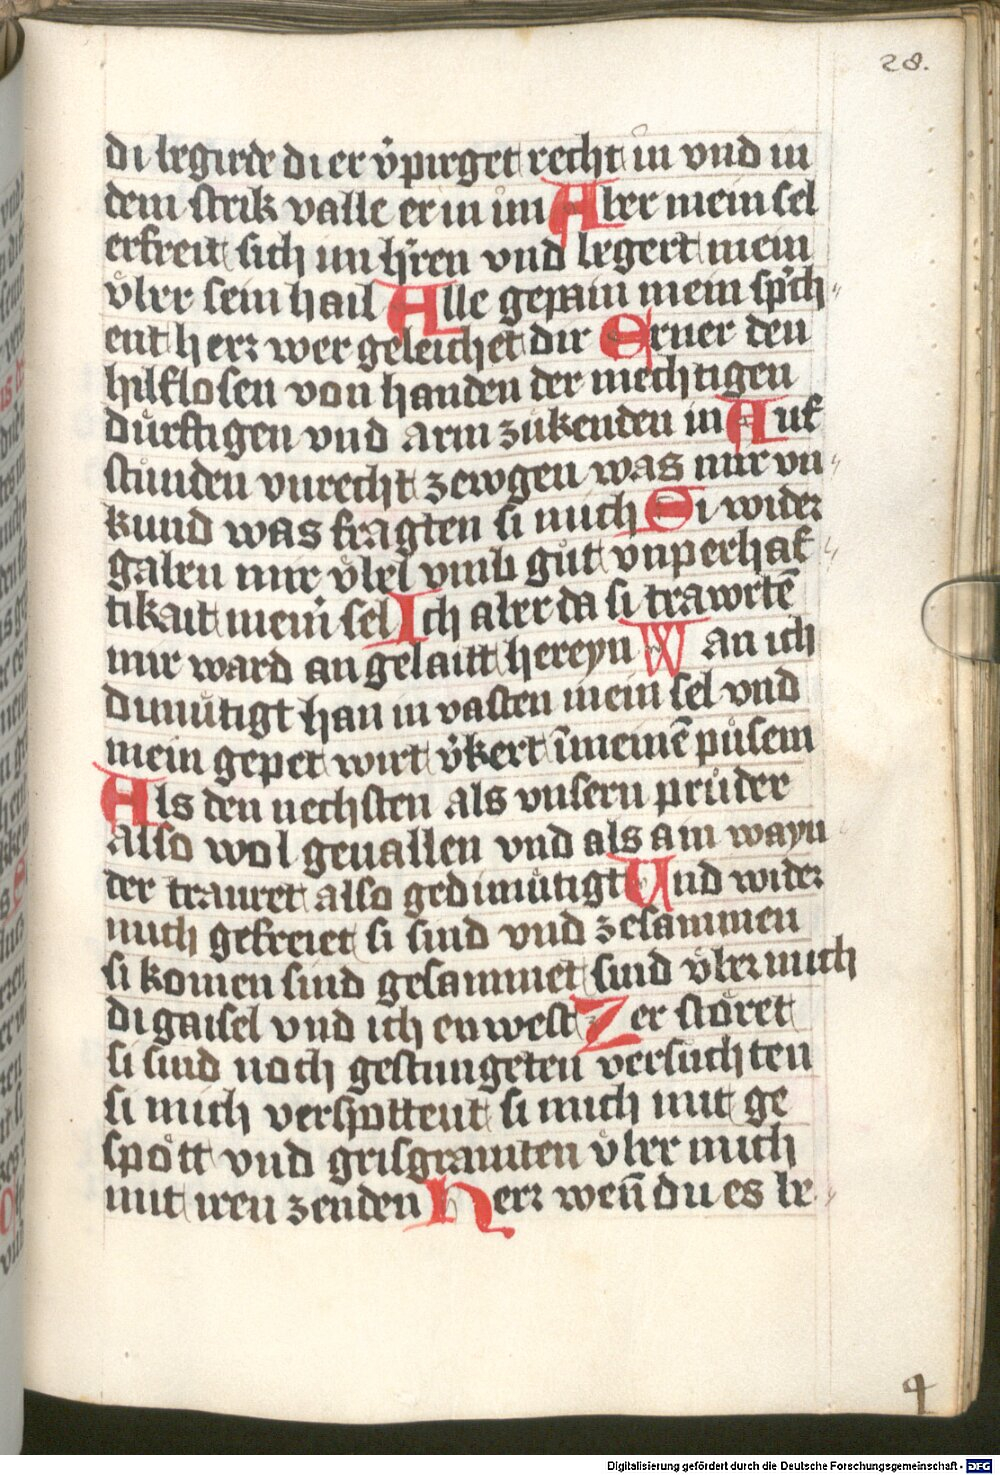 28.
di begirde di er v̾pirget recht in vnd in
dem strik valle er in im Aber mein sel
erfreit sich im h̾ren vnd begert mein
vͤber sein hail Alle gepain mein sp̾ch
ent herr wer geleichet dir Erner den
hilflosen von handen der mechtigen
duͤrftigen vnd arm zuͤkenden in Auf
stuͤnden vnrecht zewgen was mir vn
kund was fragten si mich Si wider
galten mir vͤbel vmb guͦt vnperhaf
tikait mein̾ sel Ich aber da si trawrtē
mir ward an gelaitt hereyn Wan ich
dimuͤtigt han in vasten mein sel vnd
mein gepet wirt v̾kert ī meinē puͦsem
Als den nechsten als vnsern pruͤder
also wol geuallen vnd als ain wayn
der trauret also gedimuͤtigt Und wider
mich gefreiet si sind vnd zesammen
si komen sind gesammet sind vͤber mich
di gaisel vnd ich en west Zer stoͤret
si sind noch gestungeten versuchten
si mich verspottent si mich mit ge
spoͤtt vnd grisgramten vͤber mich
mit iren zenden Herr wen̄ du es be
4
Digitalisierung gefördert durch die Deutsche Forschungsgemeinschaft - DFG